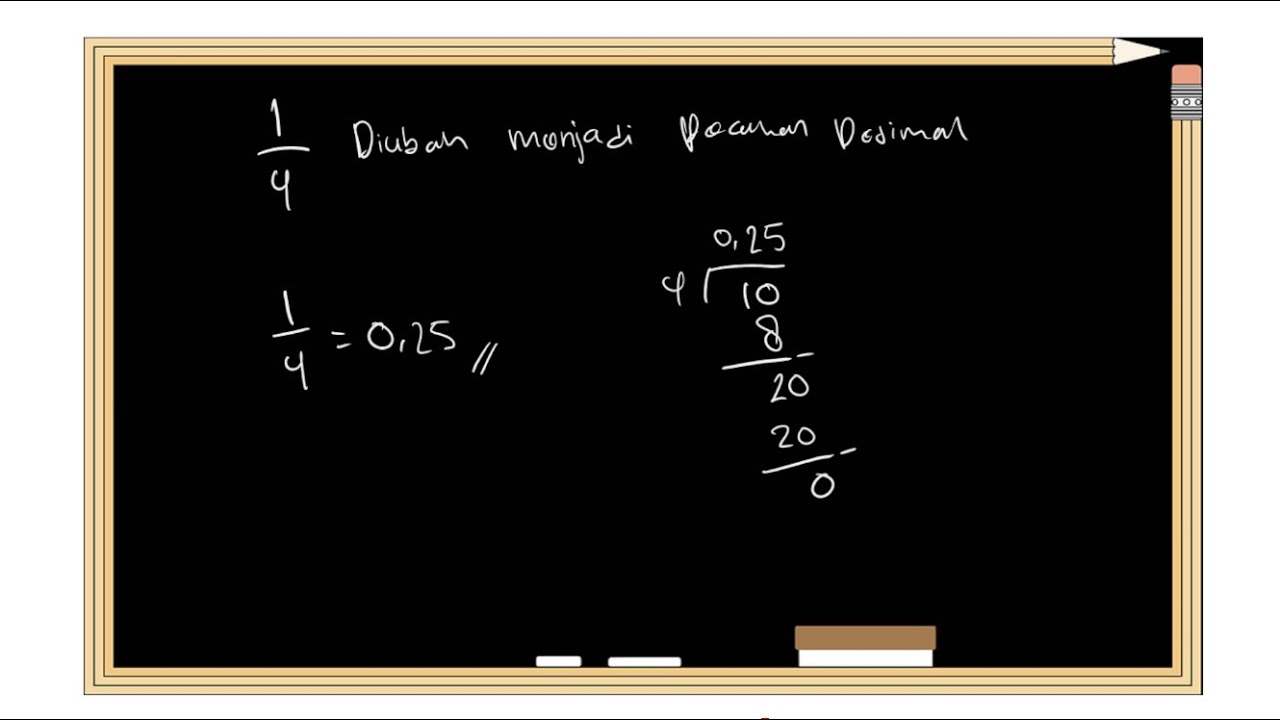 1/4 Diubah menjadi Pecahan Desimal
1/4 = 0,25 //
0,25
4 √10
8 -
20
20 -
0